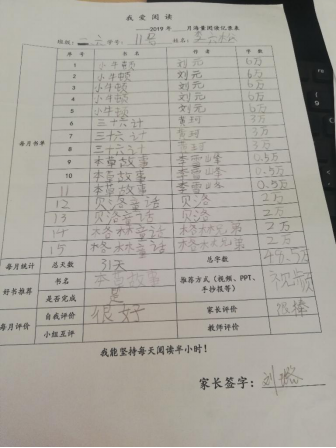 我 爱 阅 读
——2019 年 月海量阅读记录表
班级: 学号: 11号 姓名:
序号 书名 作者 字数
每月书单
1 小牛顿 刘元 6万
2 小牛顿 刘元 6万
3 小牛顿 刘元 6万
4 小牛顿 刘元 6万
5 小牛顿 刘元 6万
6 三十六计 3万
7 三十六计 3万
8 三十六计 3万
9 本草故事 李雪峰 0.5万
10 本草故事 李雪峰 0.5万
11 本草故事 李雪 0.5万
12 贝洛童话 贝洛 2万
13 贝洛童话 贝洛 2万
14 格林童话 格林兄弟 2万
15 格林童话 格林兄弟 2万
每月统计 总天数 31天 总字数
好书推荐 书名 本草故事 推荐方式(视频、PPT、手抄报等) 视频
是否完成 是
每月评价 自我评价 很好 家长评价 棒
小组互评 教师评价
我能坚持每天阅读半小时!
家长签字: 刘